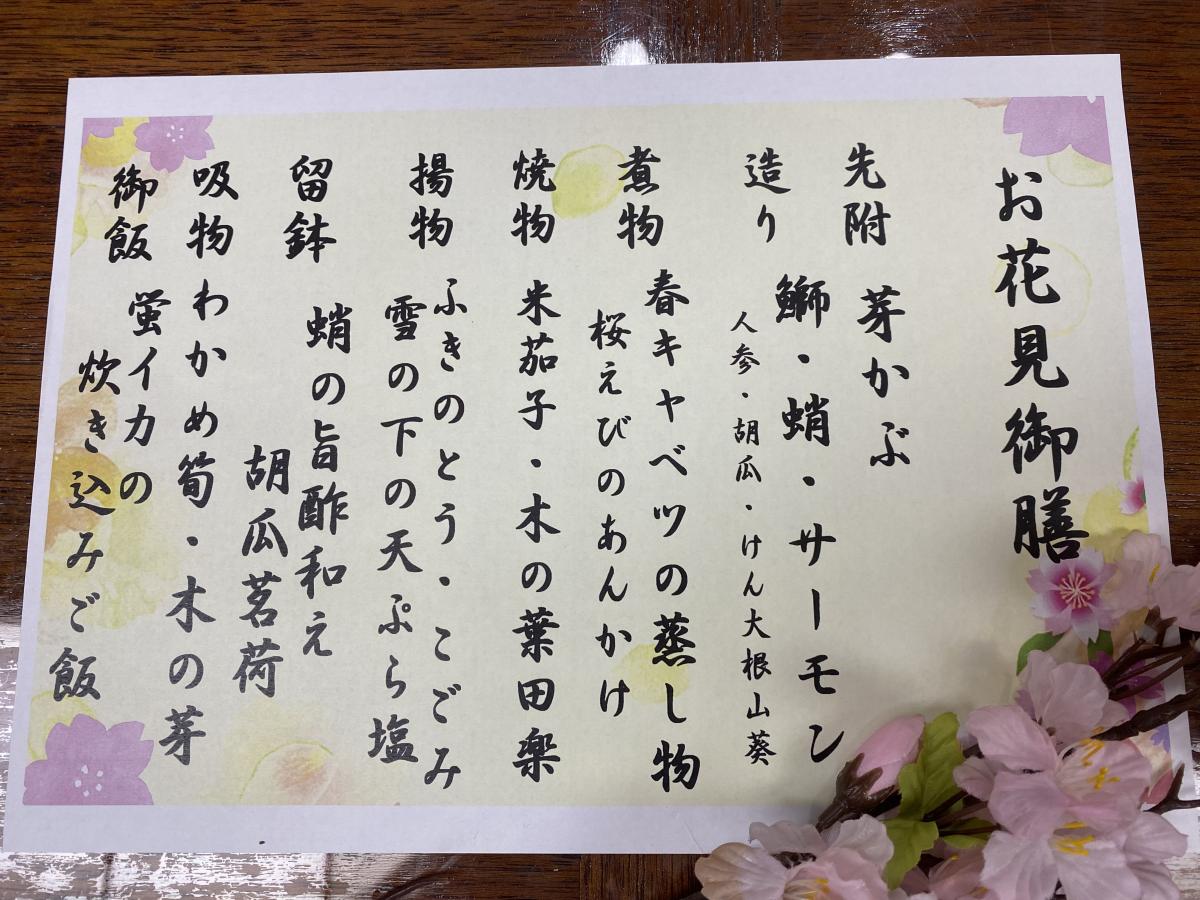 お花見御膳
先附 芽かぶ
造り 鰤・蛸・サーモン
人参・胡瓜・けん大根山葵
煮物 春キャベツの蒸し物
桜えびのあんかけ
焼物 米茄子・木の葉田楽
揚物 ふきのとう・こごみ
雪の下の天ぷら塩
留鉢 蛸の旨酢和え
胡瓜茗荷
吸物 わかめ筍・木の芽
御飯 蛍イカの
炊き込みご飯